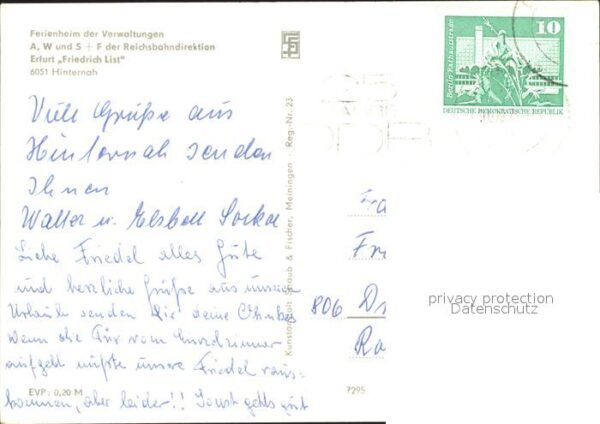 Ferienheim der Verwaltungen
A, W und S + F der Reichsbahndirektion
Erfurt „Friedrich List"
6051 Hinternah
Viele Grüße aus
Hinternah senden
Ihnen
Walter u. Elsbeth
Liebe Friedel alles Gute
und herzliche Grüße aus unserem
Urlaube senden Dir deine
Wenn die Tür vom
aufgeht müßte unsere Friedel raus-
kommen, aber leider!! Sonst gehts gut
EVP: 0,20 M
Kunstanstalt Straub & Fischer, Meiningen · Reg.-Nr. 23
7295
10
Berlin-Rathausstraße
DEUTSCHE DEMOKRATISCHE REPUBLIK
Fra
Fr
806 Dr
Ra
privacy protection
Datenschutz